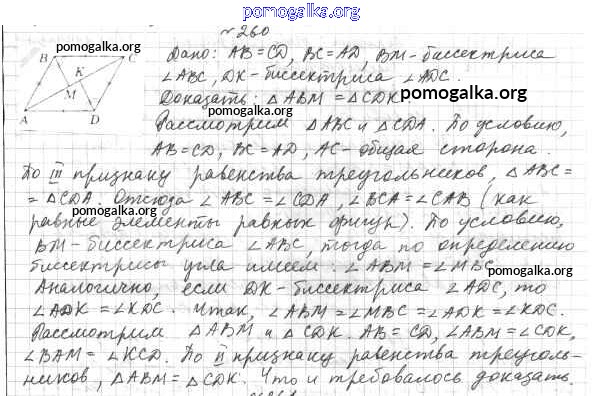 pomogalka.org
№ 260
B pomogalka.org C
K
M
A D
pomogalka.org
Дано: AB = CD, BC = AD, BM - биссектриса
∠ABC, DK - биссектриса ∠ADC.
Доказать: △ABM = △CDK pomogalka.org
Рассмотрим △ABC и △CDA. По условию,
AB = CD, BC = AD, AC - общая сторона.
По III признаку равенства треугольников, △ABC =
= △CDA. Отсюда ∠ABC = ∠CDA, ∠BCA = ∠CAB (как
pomogalka.org
равные элементы равных фигур). По условию,
BM - биссектриса ∠ABC, тогда по определению
биссектрисы угла имеем: ∠ABM = ∠MBC.
pomogalka.org
Аналогично, если DK - биссектриса ∠ADC, то
∠ADK = ∠KDC. Итак, ∠ABM = ∠MBC = ∠ADK = ∠KDC.
Рассмотрим △ABM и △CDK. AB = CD, ∠ABM = ∠CDK,
∠BAM = ∠KCD. По II признаку равенства треуголь-
ников, △ABM = △CDK. Что и требовалось доказать.
pomogalka.org